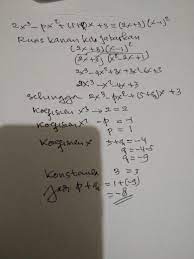 2x³ - px² + (5+q)x + 3 = (2x+3)(x-1)²
Ruas kanan kita jabarkan
(2x+3)(x-1)²
(2x+3)(x²-2x+1)
2x³-4x²+2x+3x²-6x+3
2x³-x²-4x+3
Sehingga 2x³-px²+(5+q)x+3
Koefisien x³ → 2 = 2
Koefisien x² -p = -1
p = 1
Koefisien x 5+q = -4
q = -4-5
q = -9
Konstanta 3 = 3
Jadi p+q = 1+(-9)
= -8